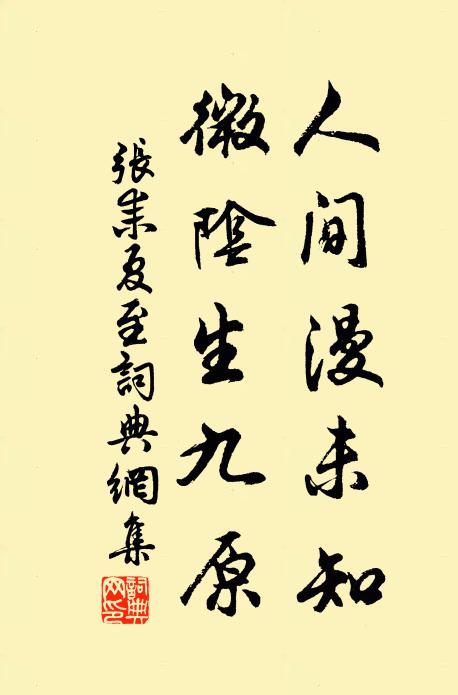 人間漫未知
微陰生九原
張耒夏至詞典網集
詞典網印